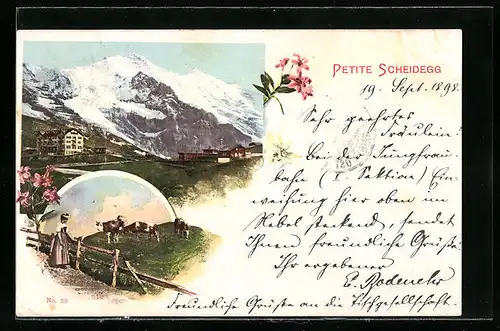 PETITE SCHEIDEGG
19. Sept. 1898.
Sehr geehrtes
Fräulein!
Bei der Jungfrau-
bahn (I Sektion) Ein-
weihung hier oben im
Nebel steckend, sendet
Ihnen freundliche Grüße
Ihr ergebener
E. Rodenehr
Freundliche Grüße an die Tischgesellschaft.
No. 29